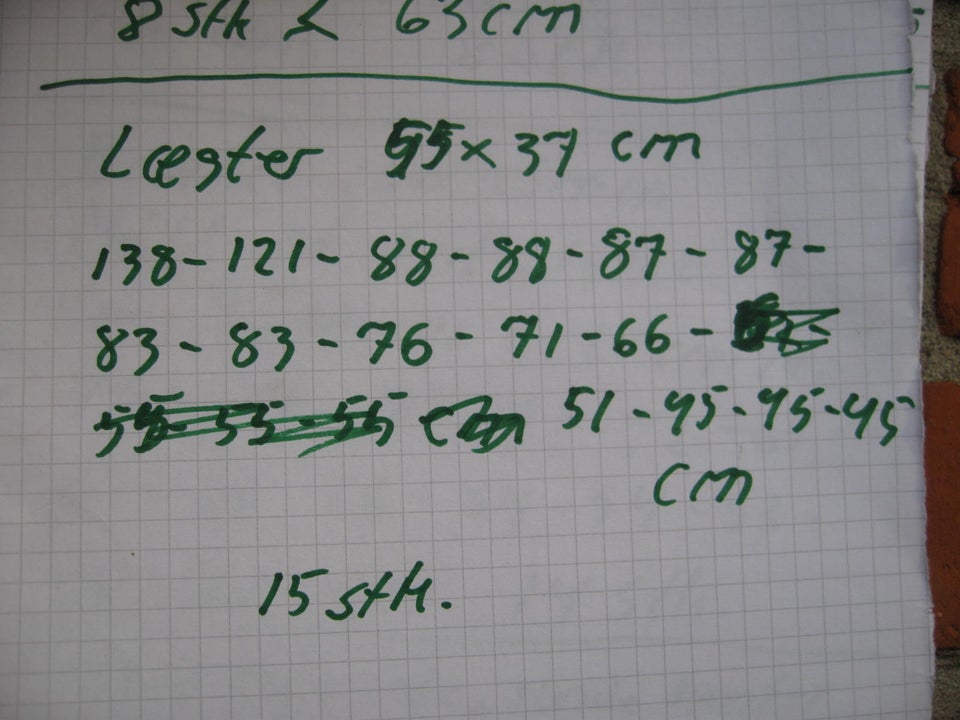 8 stk à 63 cm
Lægter 55 x 37 cm
138 - 121 - 88 - 88 - 87 - 87 -
83 - 83 - 76 - 71 - 66 -
55 - 55 - 55 cm 51 - 45 - 45 - 45
cm
15 stk.